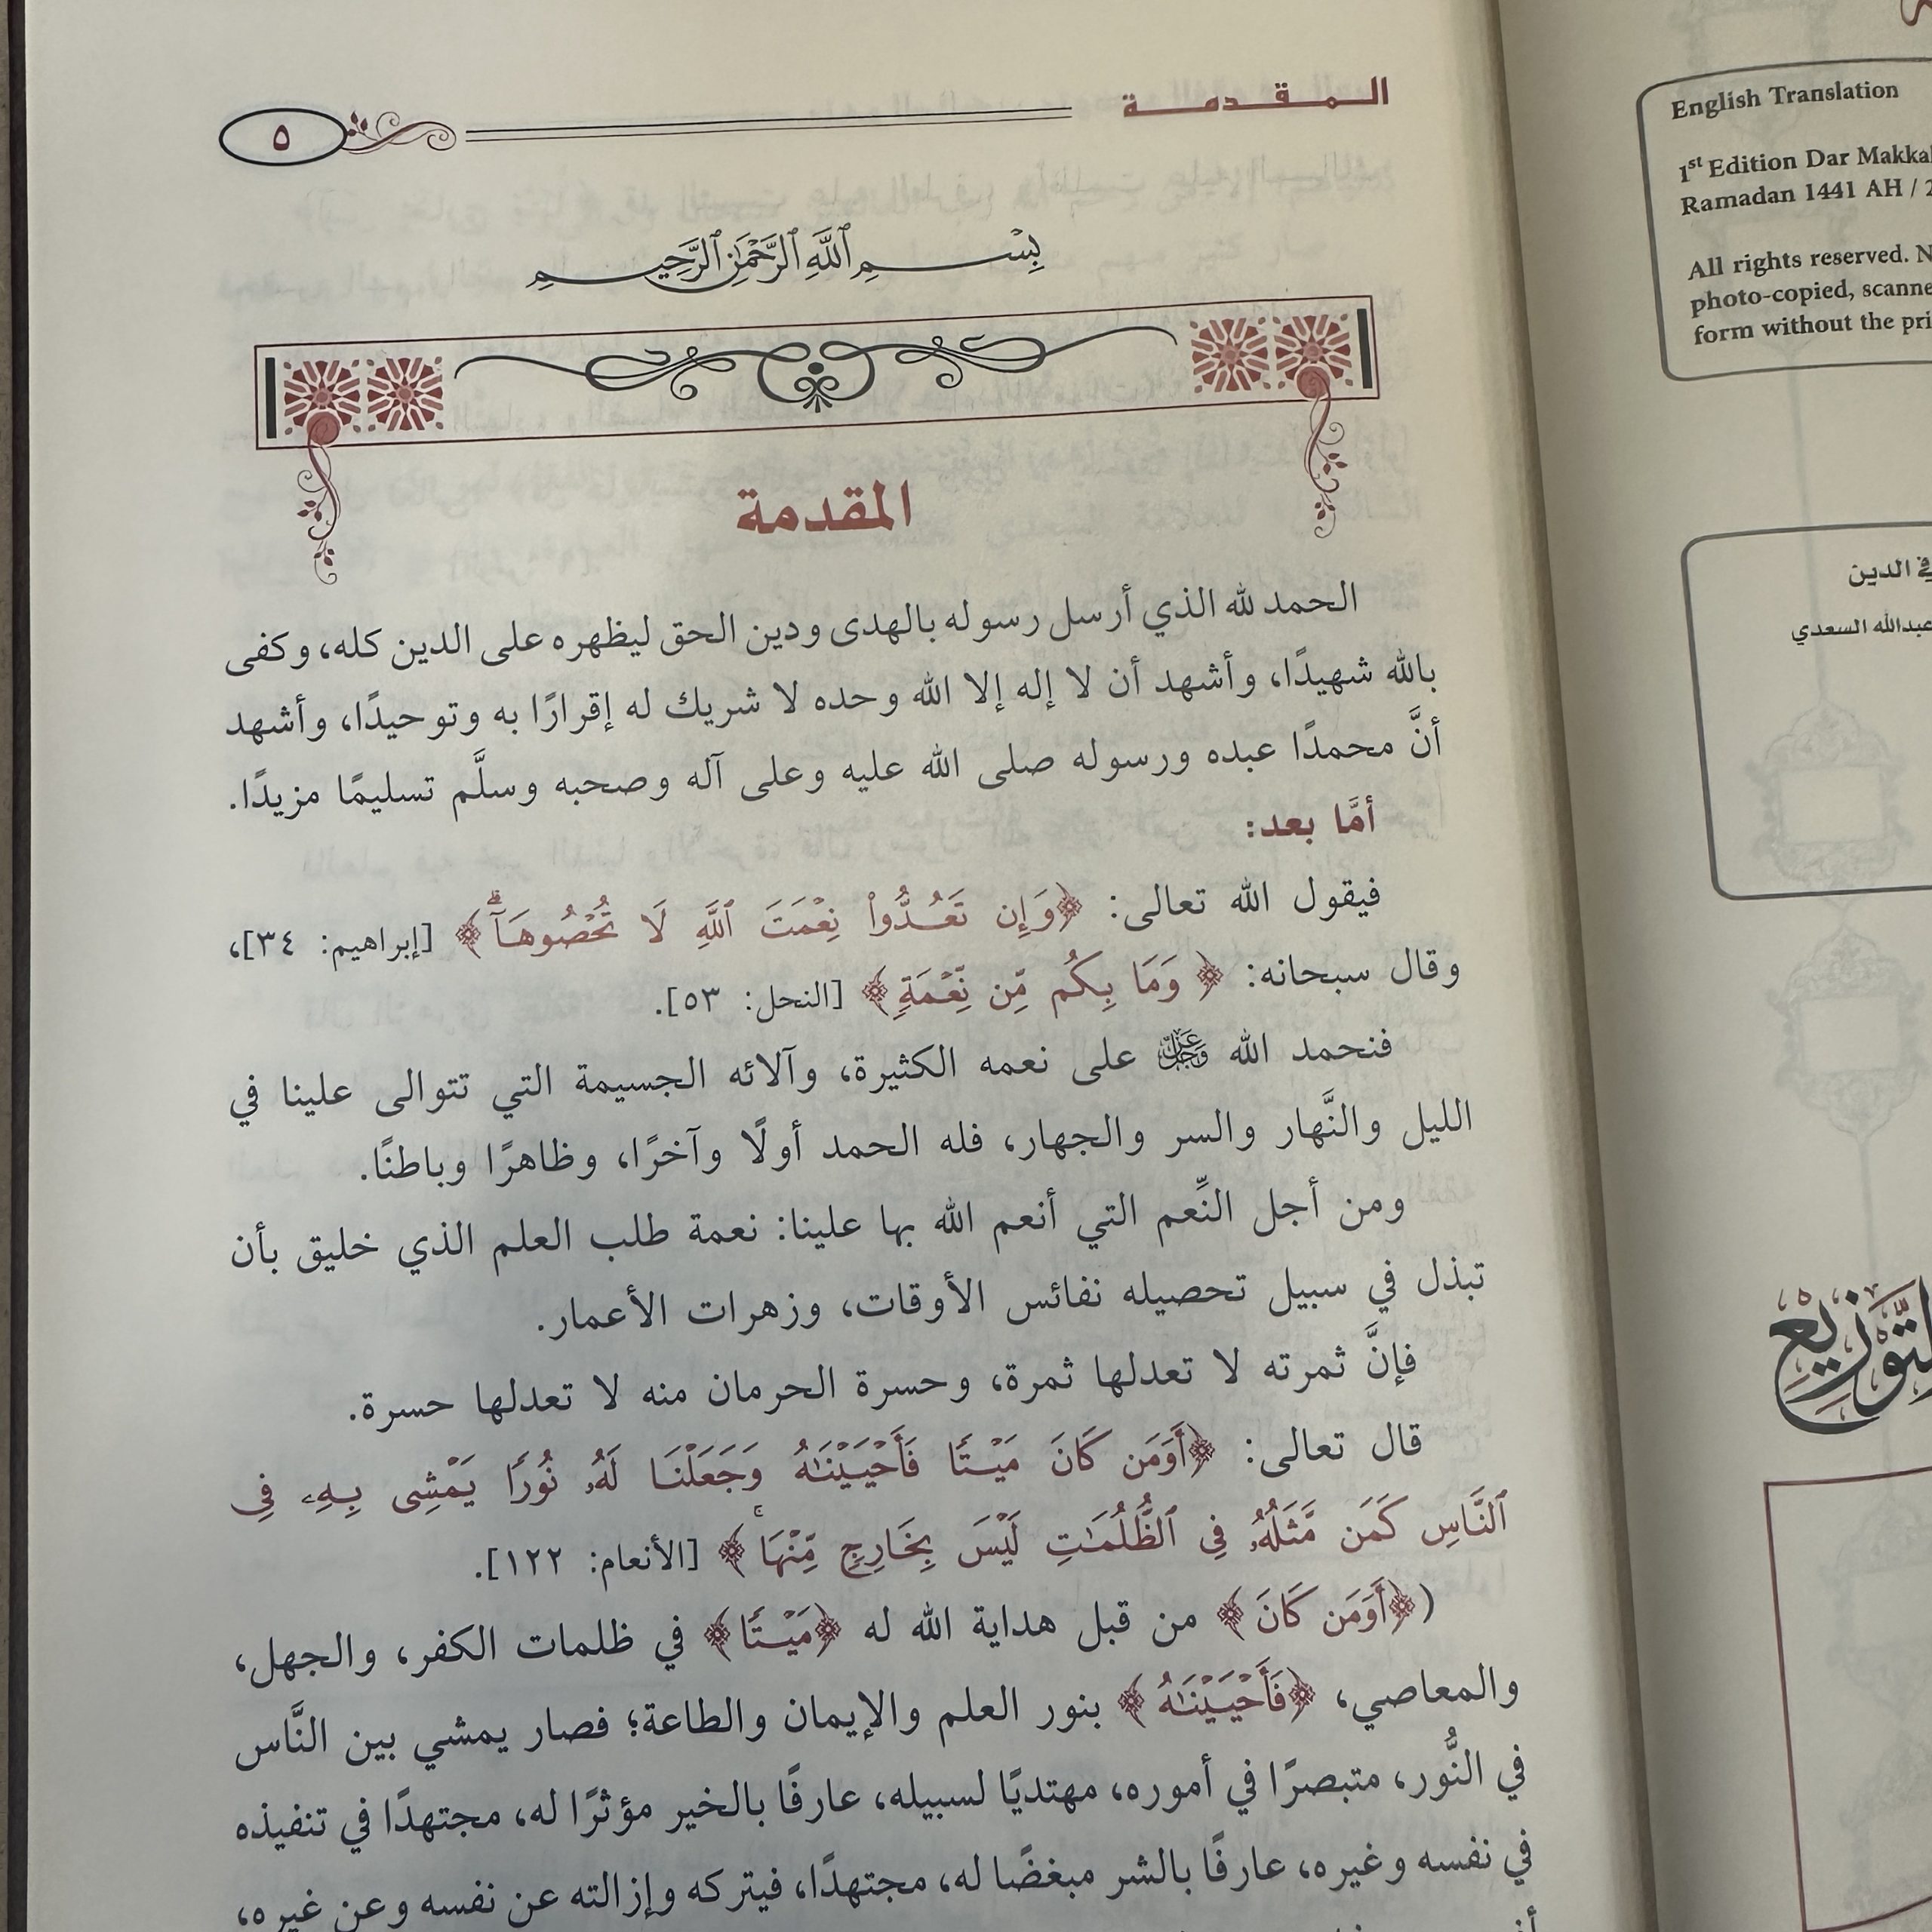 المقدمة
٥
بِسْمِ ٱللَّهِ ٱلرَّحْمَٰنِ ٱلرَّحِيمِ
المقدمة
الحمد لله الذي أرسل رسوله بالهدى ودين الحق ليظهره على الدين كله، وكفى
بالله شهيدًا، وأشهد أن لا إله إلا الله وحده لا شريك له إقرارًا به وتوحيدًا، وأشهد
أنَّ محمدًا عبده ورسوله صلى الله عليه وعلى آله وصحبه وسلَّم تسليمًا مزيدًا.
أمَّا بعد:
فيقول الله تعالى: ﴿وَإِن تَعُدُّوا۟ نِعْمَتَ ٱللَّهِ لَا تُحْصُوهَآ ۗ﴾ [إبراهيم: ٣٤]،
وقال سبحانه: ﴿وَمَا بِكُم مِّن نِّعْمَةٍ﴾ [النحل: ٥٣].
فنحمد الله عَزَّوَجَلَّ على نعمه الكثيرة، وآلائه الجسيمة التي تتوالى علينا في
الليل والنَّهار والسر والجهار، فله الحمد أولًا وآخرًا، وظاهرًا وباطنًا.
ومن أجل النِّعم التي أنعم الله بها علينا: نعمة طلب العلم الذي خليق بأن
تبذل في سبيل تحصيله نفائس الأوقات، وزهرات الأعمار.
فإنَّ ثمرته لا تعدلها ثمرة، وحسرة الحرمان منه لا تعدلها حسرة.
قال تعالى: ﴿أَوَمَن كَانَ مَيْتًا فَأَحْيَيْنَٰهُ وَجَعَلْنَا لَهُۥ نُورًا يَمْشِى بِهِۦ فِى
ٱلنَّاسِ كَمَن مَّثَلُهُۥ فِى ٱلظُّلُمَٰتِ لَيْسَ بِخَارِجٍ مِّنْهَا ۚ﴾ [الأنعام: ١٢٢].
(﴿أَوَمَن كَانَ﴾ من قبل هداية الله له ﴿مَيْتًا﴾ في ظلمات الكفر، والجهل،
والمعاصي، ﴿فَأَحْيَيْنَٰهُ﴾ بنور العلم والإيمان والطاعة؛ فصار يمشي بين النَّاس
في النُّور، متبصرًا في أموره، مهتديًا لسبيله، عارفًا بالخير مؤثرًا له، مجتهدًا في تنفيذه
في نفسه وغيره، عارفًا بالشر مبغضًا له، مجتهدًا، فيتركه وإزالته عن نفسه وعن غيره،
English Translation
1st Edition Dar Makkah
Ramadan 1441 AH /
All rights reserved.
photo-copied,
form without the
في الدين
عبدالله السعدي